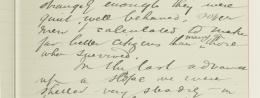 strangely enough they were
quiet, well behaved,
men calculated to make
far better citizens than many those
who survived.
In the last advance
up a slope we were
shelled very steadily in